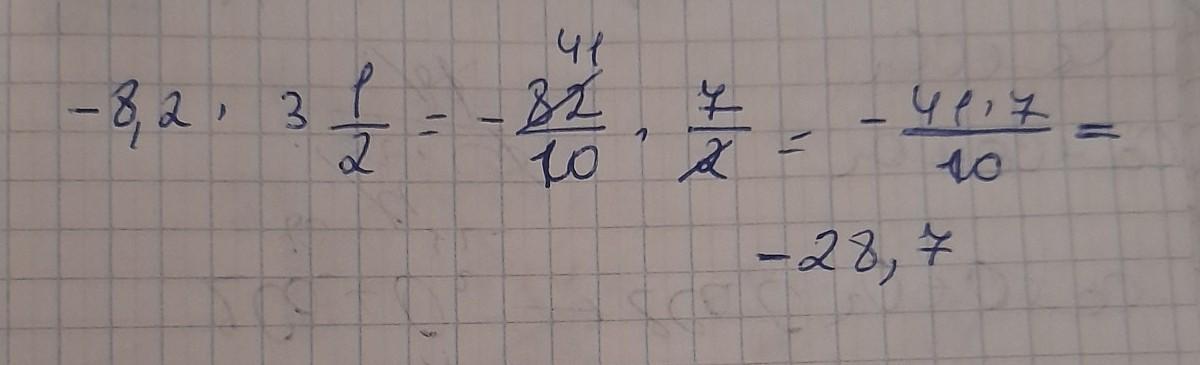 -8,2 · 3 1/2 = - 82/10 · 7/2 = - 41·7/10 =
41
-28,7